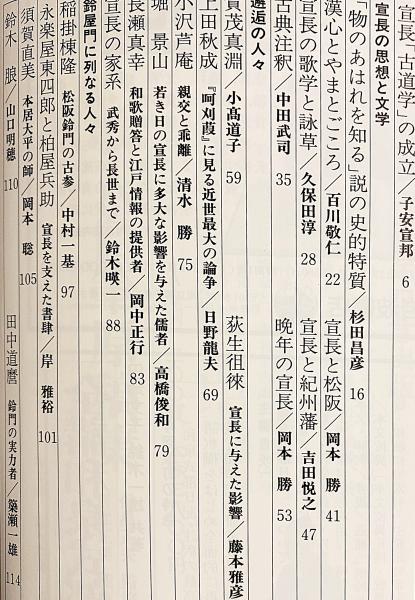 宣長「古道学」の成立／子安宣邦 6
宣長の思想と文学
「物のあはれを知る」説の史的特質／杉田昌彦 16
漢心とやまとごころ／百川敬仁 22
宣長と松阪／岡本 勝 41
宣長の歌学と詠草／久保田淳 28
宣長と紀州藩／吉田悦之 47
古典注釈／中田武司 35
晩年の宣長／岡本 勝 53
邂逅の人々
賀茂真淵／小髙道子 59
荻生徂徠 宣長に与えた影響／藤本雅彦
上田秋成 『呵刈葭』に見る近世最大の論争／日野龍夫 69
小沢芦庵 親交と乖離／清水 勝 75
堀 景山 若き日の宣長に多大な影響を与えた儒者／高橋俊和 79
長瀬真幸 和歌贈答と江戸情報の提供者／岡中正行 83
宣長の家系 武秀から長世まで／鈴木暎一 88
鈴屋門に列なる人々
稲掛棟隆 松阪鈴門の古参／中村一基 97
永楽屋東四郎と柏屋兵助 宣長を支えた書肆／岸 雅裕 101
須賀直美 本居大平の師／岡本 聡 105
田中道麿 鈴門の実力者／簗瀬一雄 114
鈴木 朖／山口明穂 110